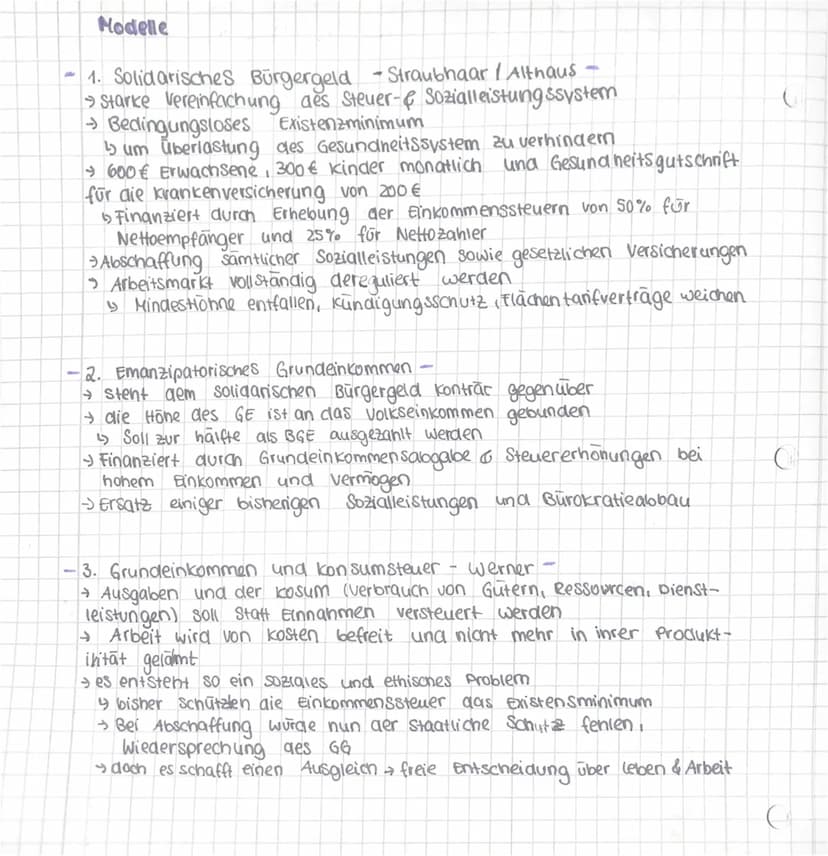 Modelle
- 1. Solidarisches Bürgergeld - Straubhaar / Althaus -
→ starke Vereinfachung des Steuer- & Sozialleistungssystem
→ Bedingungsloses Existenzminimum
↳ um Überlastung des Gesundheitssystem zu verhindern
→ 600 € Erwachsene, 300 € Kinder monatlich und Gesundheitsgutschrift
für die Krankenversicherung von 200 €
↳ Finanziert durch Erhebung der Einkommenssteuern von 50% für
Nettoempfänger und 25% für Nettozahler
→ Abschaffung sämtlicher Sozialleistungen sowie gesetzlichen Versicherungen
→ Arbeitsmarkt vollständig dereguliert werden
↳ Mindestlöhne entfallen, Kündigungsschutz, Flächentarifverträge weichen
- 2. Emanzipatorisches Grundeinkommen -
→ steht dem solidarischen Bürgergeld konträr gegenüber
→ die Höhe des GE ist an das Volkseinkommen gebunden
↳ Soll zur hälfte als BGE ausgezahlt werden
→ Finanziert durch Grundeinkommensabgabe & Steuererhöhungen bei
hohem Einkommen und Vermögen
→ Ersatz einiger bisherigen Sozialleistungen und Bürokratieabbau
- 3. Grundeinkommen und Konsumsteuer - Werner -
→ Ausgaben und der Kosum (Verbrauch von Gütern, Ressourcen, Dienst-
leistungen) soll statt Einnahmen versteuert werden
→ Arbeit wird von Kosten befreit und nicht mehr in ihrer Produkt-
ivität gelähmt
→ es entsteht so ein soziales und ethisches Problem
↳ bisher schützen die Einkommenssteuer das Existensminimum
→ Bei Abschaffung würde nun der staatliche Schutz fehlen,
Wiedersprechung des GG
→ doch es schafft einen Ausgleich → freie Entscheidung über Leben & Arbeit